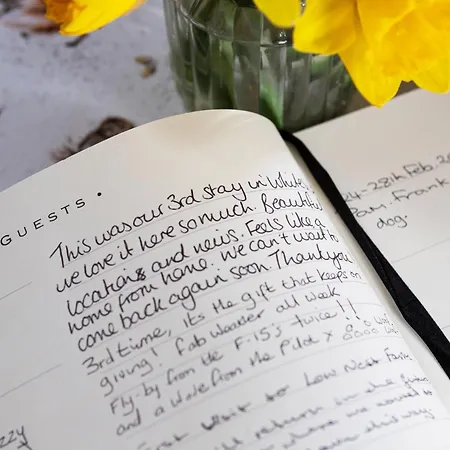 GUESTS •
This was our 3rd stay in White
we love it here so much. Beautiful
location and views. Feels like a
home from home. We can't wait to
come back again soon. Thank you
3rd time, it's the gift that keeps on
giving! Fab weather all week
Fly-by from the F-15's twice!!
and a wave from the Pilot x
First visit to Low Nest Farm
return in the
where we
24-28th Feb. 20
Pam. Frank
dog.